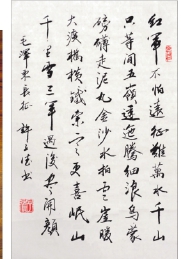 紅軍不怕遠征難萬水千山
只等閒五嶺逶迤騰細浪烏蒙
磅礴走泥丸金沙水拍雲崖暖
大渡橋橫鐵索寒更喜岷山
千里雪三軍過後盡開顏
毛澤東長征 許書